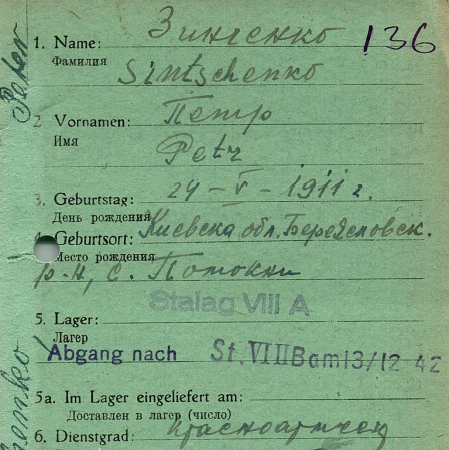 1. Name: Зинченко 136
Фамилия Sintschenko
2 Vornamen: Петр
Имя Petr
3. Geburtstag: 24-V-1911 г.
День рождения
4. Geburtsort: Киевска обл.
Место рождения
р-н, с. Потоки
Stalag VIII A
5. Lager:
Лагер
Abgang nach St. VIIIB am 13/12 42
5a. Im Lager eingeliefert am:
Доставлен в лагер (число)
6. Dienstgrad: Красноармеец